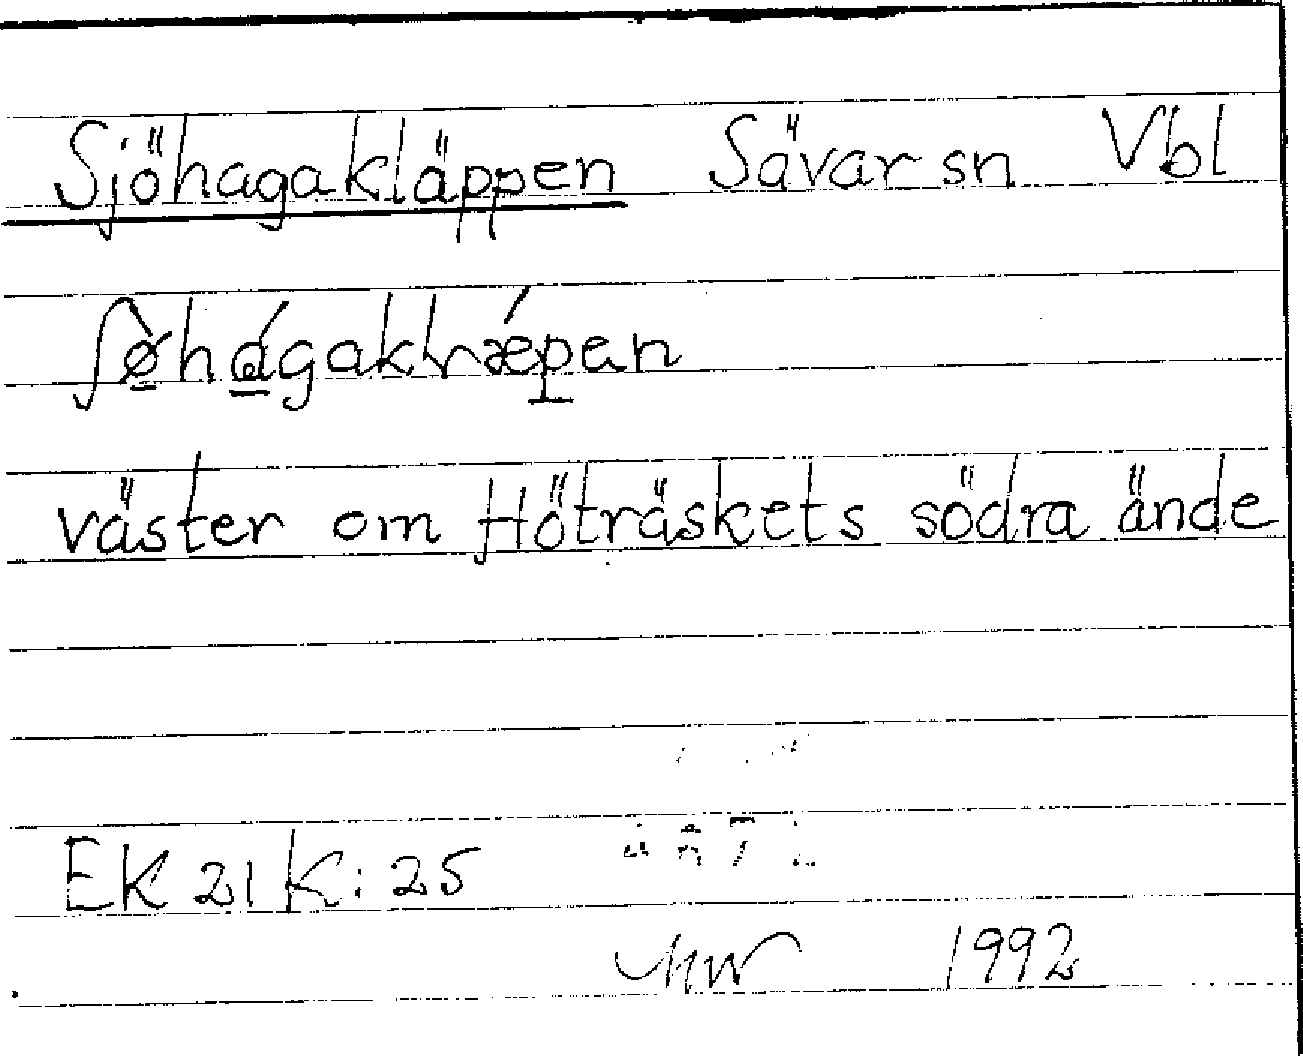 Sjöhagakläppen Sävar sn Vbl
ʃø̀hágakɽǽpen
väster om Höträskets södra ände
EK 21 K: 25
1992